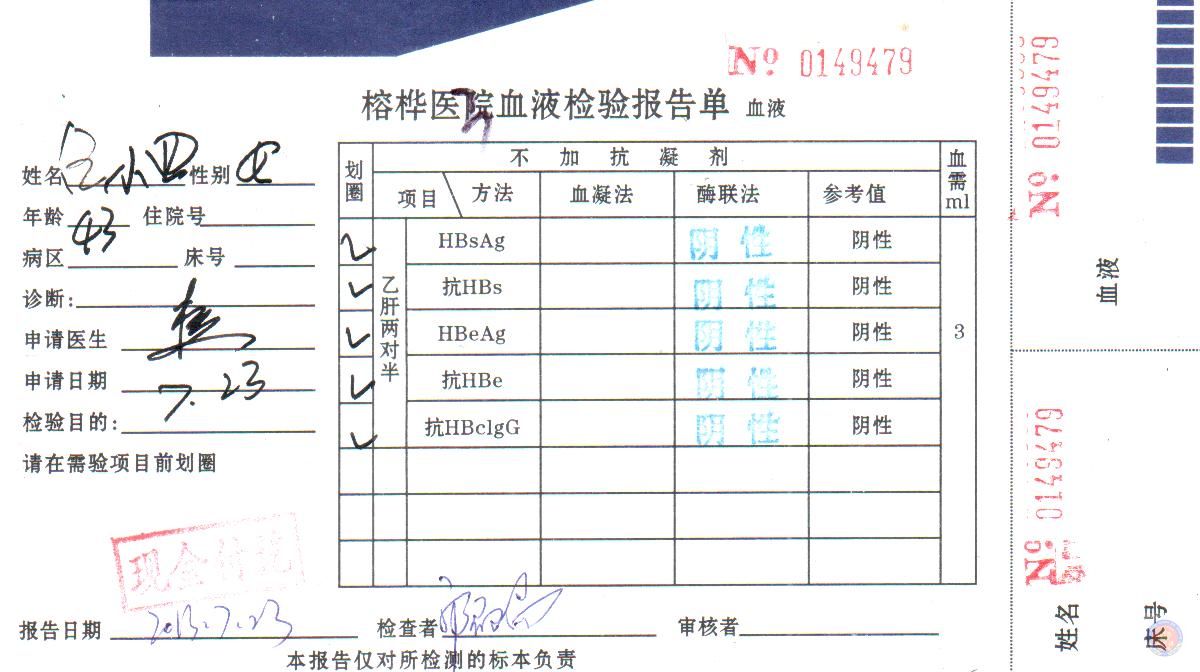 No 0149479
榕桦医院血液检验报告单 血液
姓名 小四 性别 女
年龄 43 住院号
病区 床号
诊断:
申请医生
申请日期 7.23
检验目的:
请在需验项目前划圈
划圈 不加抗凝剂 血需ml
项目 方法 血凝法 酶联法 参考值
乙肝两对半
HBsAg 阴性 阴性
抗HBs 阴性 阴性
HBeAg 阴性 阴性 3
抗HBe 阴性 阴性
抗HBclgG 阴性 阴性
现金付讫
报告日期 2013.7.23 检查者 审核者
本报告仅对所检测的标本负责
No 0149479
血液
No 0149479
姓名 床号